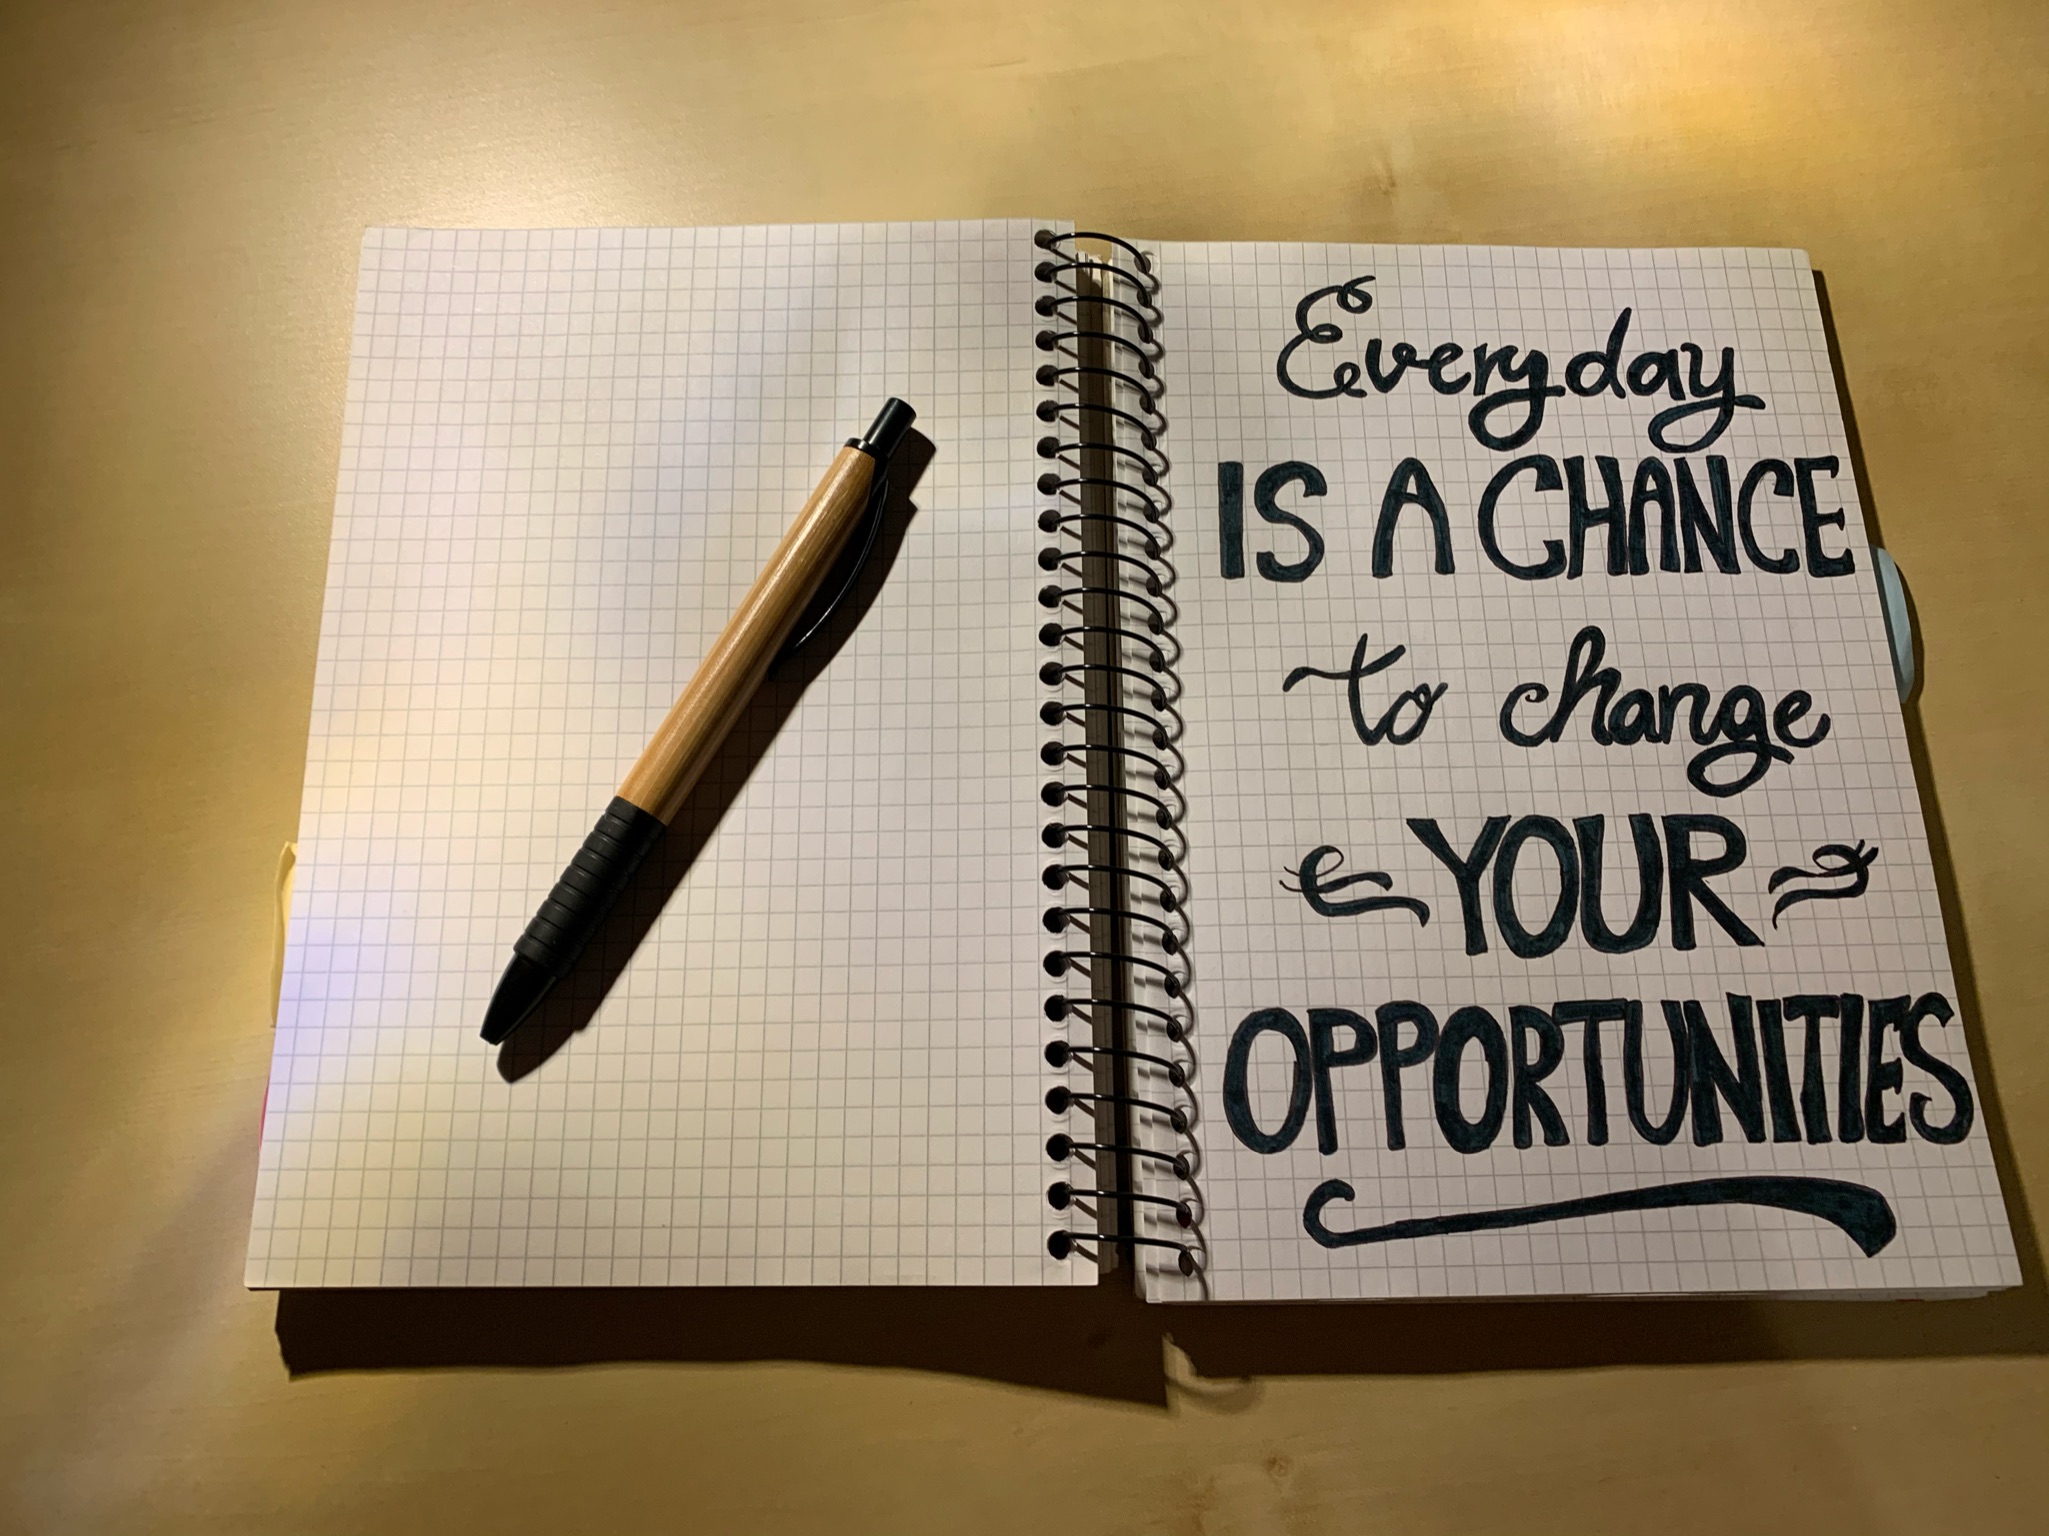 Everyday
IS A CHANCE
to change
YOUR
OPPORTUNITIES